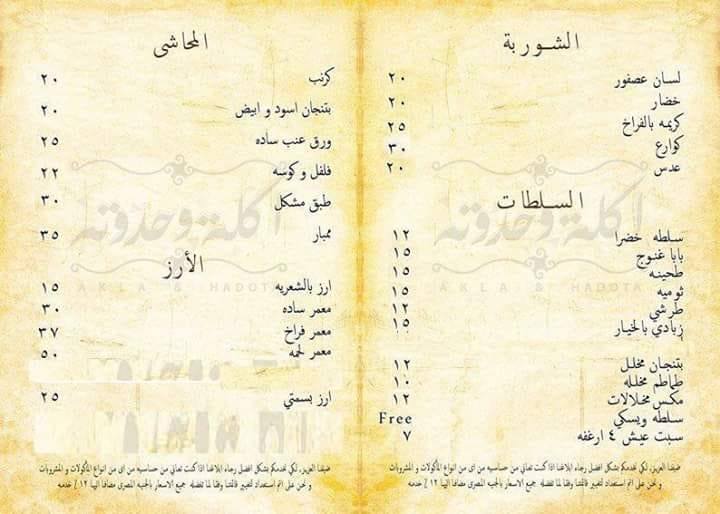 الشوربة
لسان عصفور ٢٠
خضار ٢٠
كريمه بالفراخ ٢٥
كوارع ٣٠
عدس ٢٠
السلطات
سلطه خضرا ١٢
بابا غنوج ١٥
طحينه ١٥
ثوميه ١٥
طرشي ١٢
زبادي بالخيار ١٥
بتنجان مخلل ١٢
طماطم مخلله ١٠
مكس مخللات ١٢
سلطه ويسكي Free
سبت عيش ٤ ارغفه ٧
ضيفنا العزيز, لكي نخدمكم بشكل افضل رجاء ابلاغنا اذا كنت تعاني من حساسيه من اى من انواع المأكولات و المشروبات
و نحن على اتم استعداد لتغيير قائمتنا وفقا لما تفضله جميع الاسعار بالجنيه المصرى مضافا اليها ١٢ ٪ خدمه
المحاشى
كرنب ٢٠
بتنجان اسود و ابيض ٢٠
ورق عنب ساده ٢٥
فلفل وكوسه ٢٢
طبق مشكل ٣٠
ممبار ٣٥
الأرز
ارز بالشعريه ١٥
معمر ساده ٣٠
معمر فراخ ٣٧
معمر لحمه ٥٠
ارز بسمتي ٢٥
ضيفنا العزيز, لكي نخدمكم بشكل افضل رجاء ابلاغنا اذا كنت تعاني من حساسيه من اى من انواع المأكولات و المشروبات
و نحن على اتم استعداد لتغيير قائمتنا وفقا لما تفضله جميع الاسعار بالجنيه المصرى مضافا اليها ١٢ ٪ خدمه
اكلة وحدوته
AKLA & HADOTA
اكلة وحدوته
AKLA & HADOTA